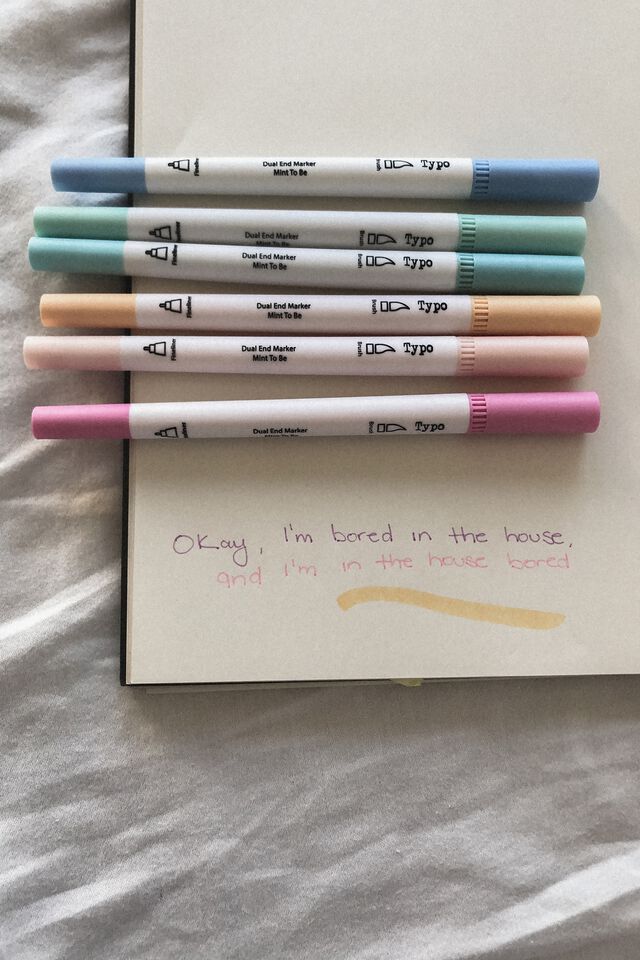 Fineliner
Dual End Marker
Mint To Be
Brush
Typo
Dual End Marker
Mint To Be
Brush
Typo
Fineliner
Dual End Marker
Mint To Be
Brush
Typo
Fineliner
Dual End Marker
Mint To Be
Brush
Typo
Fineliner
Dual End Marker
Mint To Be
Brush
Typo
Dual End Marker
Mint To Be
Typo
Okay, I'm bored in the house,
and I'm in the house bored